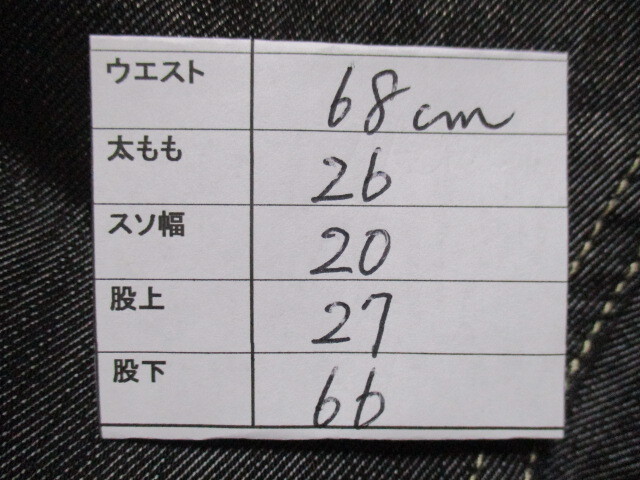 ウエスト 68cm
太もも 26
スソ幅 20
股上 27
股下 66